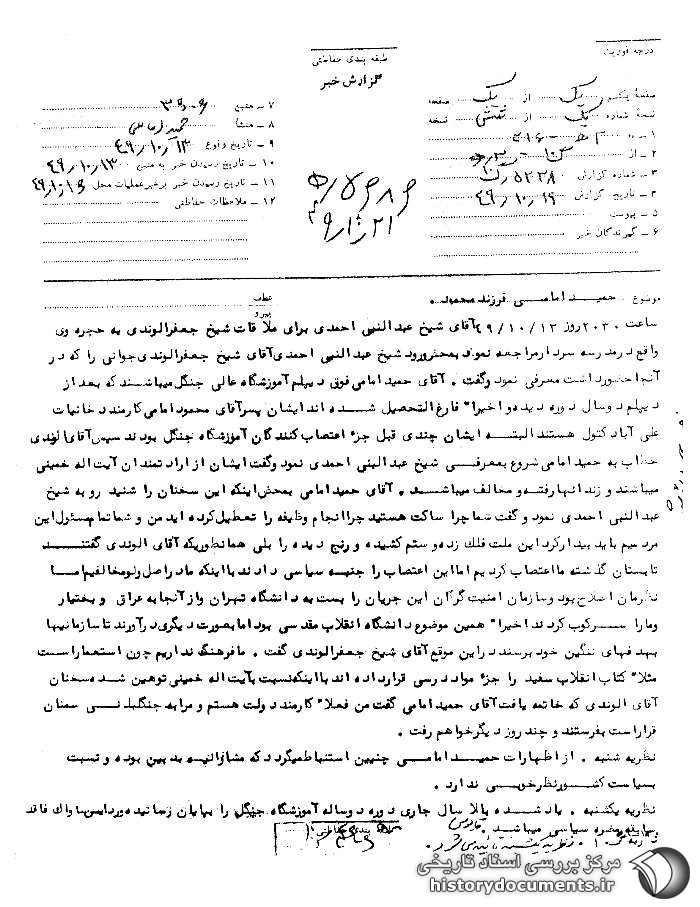 درجه فوریت
طبقه بندی حفاظتی
گزارش خبر
صفحه یکم یک از یک صفحه
نسخه شماره یک از نسخه
۱ ـ به ۳۱۶
۲ ـ از
۳ ـ شماره گزارش ۵۲۳۸
۴ ـ تاریخ گزارش ۴۹/۱۰/۱۹
۵ ـ پیوست
۶ ـ گیرندگان خبر
۷ ـ منبع
۸ ـ منشأ
۹ ـ تاریخ وقوع ۴۹/۱۰/۱۳
۱۰ ـ تاریخ رسیدن خبر به منبع ۴۹/۱۰/۱۳
۱۱ ـ تاریخ رسیدن خبر برهبر عملیات محل
۱۲ ـ ملاحظات حفاظتی
موضوع حمید امامی فرزند محمود
عطف
پیرو
ساعت ۲۰۳۰ روز ۴۹/۱۰/۱۳ آقای شیخ عبدالنبی احمدی برای ملاقات شیخ جعفر الوندی به حجره وی
واقع در مدرسه سردار مراجعه نمود بمحض ورود شیخ عبدالنبی احمدی آقای شیخ جعفر الوندی جوانی را که در
آنجا حضور داشت معرفی نمود و گفت . آقای حمید امامی فوق دیپلم آموزشگاه عالی جنگل میباشند که بعد از
دیپلم دو سال دوره دیده و اخیرا" فارغ التحصیل شده اند ایشان پسر آقای محمود امامی کارمند دخانیات
علی آباد کتول هستند البته ایشان چندی قبل جزء اعتصاب کنندگان آموزشگاه جنگل بودند سپس آقای الوندی
خطاب به حمید امامی شروع بمعرفی شیخ عبدالنبی احمدی نمود و گفت ایشان از ارادتمندان آیت اله خمینی
میباشند و زندانها رفته و مخالف میباشند . آقای حمید امامی بمحض اینکه این سخنان را شنید رو به شیخ
عبدالنبی احمدی نمود و گفت شما چرا ساکت هستید چرا انجام وظیفه را تعطیل کرده اید من و شما تمام مسئول این
مردمیم باید بیدار کرد این ملت فلک زده و ستم کشیده و رنج دیده را بلی همانطوریکه آقای الوندی گفتند
تابستان گذشته ما اعتصاب کردیم اما این اعتصاب را جنبه سیاسی دادند با اینکه ما در اصل رژیم مخالفیم اما
نظرمان اصلاح بود و سازمان امنیت گرگان این جریان را بست به دانشگاه تهران و از آنجا به عراق و بختیار
و ما را سرکوب کردند اخیرا" همین موضوع دانشگاه انقلاب مقدسی بود اما بصورت دیگری درآورند تا سازمانیها
بهدفهای ننگین خود برسند در این موقع آقای شیخ جعفر الوندی گفت . ما فرهنگ نداریم چون استعمار است
مثلا" کتاب انقلاب سفید را جزء مواد درسی قرار داده اند با اینکه نسبت به آیت اله خمینی توهین شده سخنان
آقای الوندی که خاتمه یافت آقای حمید امامی گفت من فعلا" کارمند دولت هستم و مرا به جنگلبانی سمنان
قرار است بفرستند و چند روز دیگر خواهم رفت .
نظریه شنبه . از اظهارات حمید امامی چنین استنباط میگردد که مشارالیه بدبین بوده و نسبت
بسیاست کشور نظر خوبی ندارد .
نظریه یکشنبه . یاد شده بالا سال جاری دوره دو ساله آموزشگاه جنگل را بپایان رسانیده و در این ساواک فاقد
سابقه مضره سیاسی میباشد .
طبقه بندی حفاظتی
مرکز بررسی اسناد تاریخی
historydocuments.ir